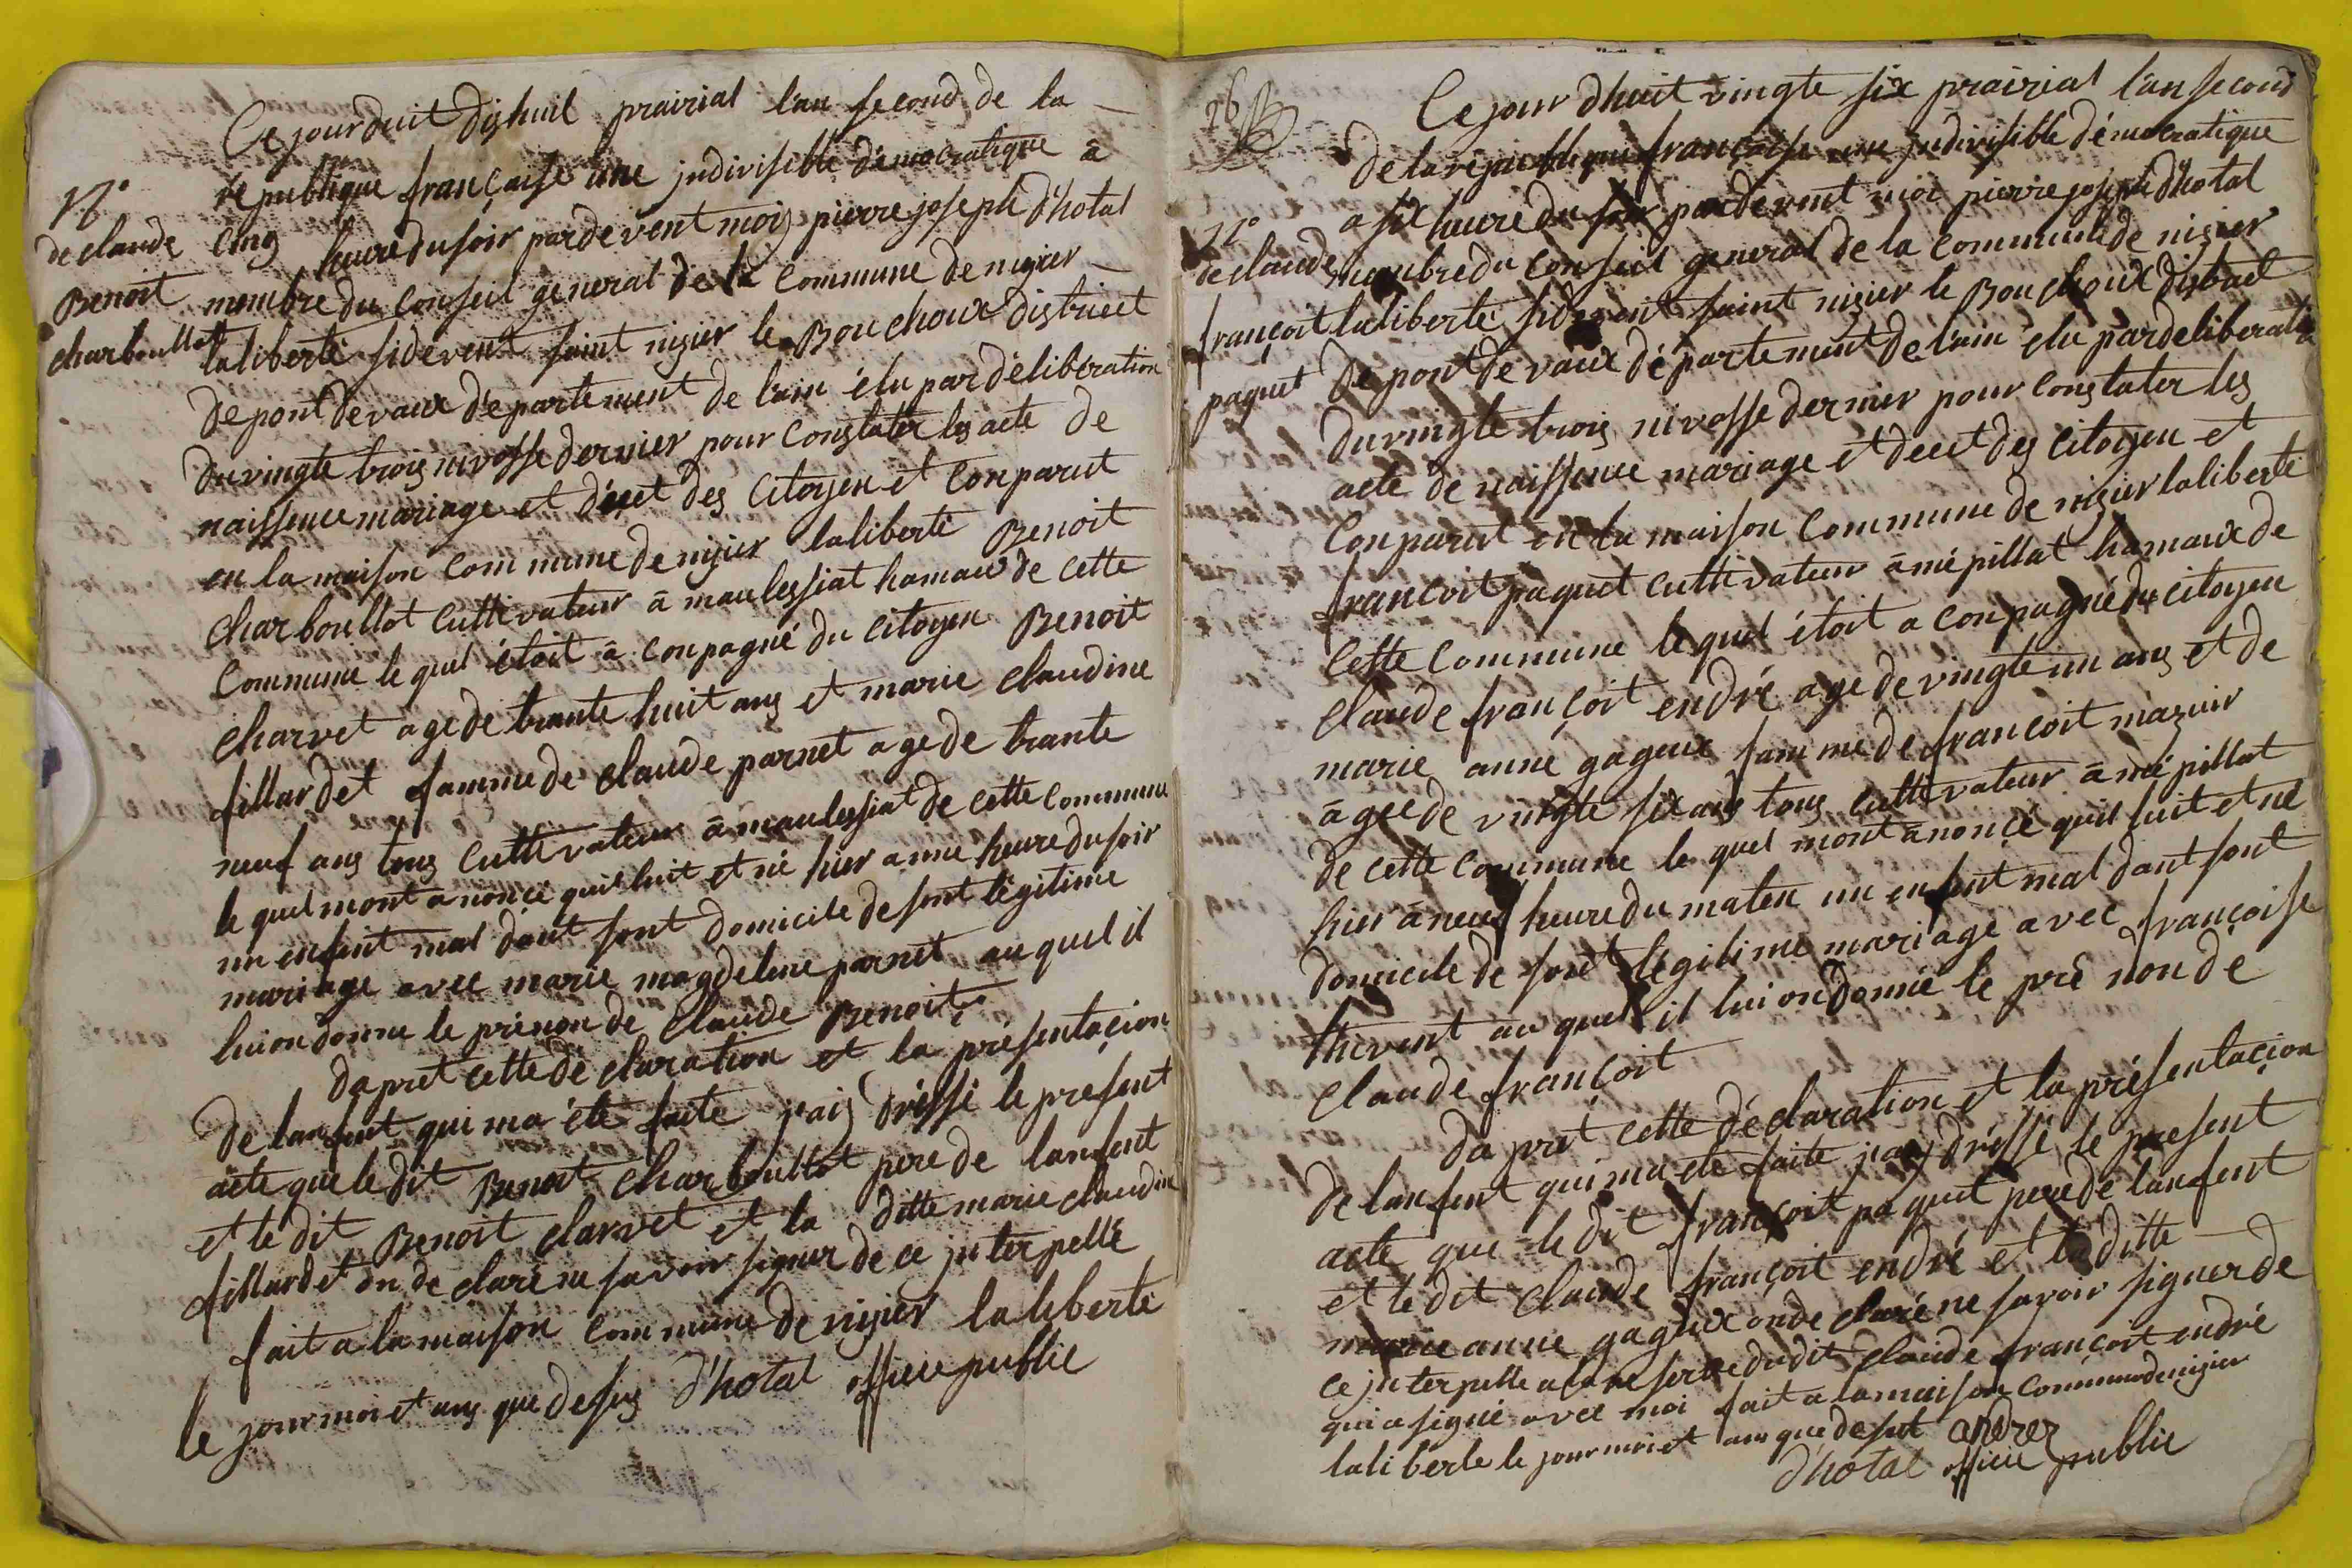 Ce jourduit dishuil prairial l'an second de la
N°
republique française une jndivisible démocratique à
de claude
cinq heure du soir pardevent moy pierre joseph d'hotal
Benoit
membre du conseil general de la commune de nizier
charboullot
laliberté sidevent saint nizier le Bouchoux district
de pont de vaux département de l'ain élu par délibération
du vingte trois nivosse dernier pour constater les acte de
naissence mariage et décet des citoyen et conparut
en la maison commune de nizier laliberté Benoit
charboullot cultivateur à maulessiat hamaux de cette
commune le quel étoit à conpagné du citoyen Benoit
charvet age de trante huit ans et marie claudine
fillardet famme de claude parnet age de trante
neuf ans tous cultivateur à maulessiat de cette commune
le quel mont anoncé quil luit et né hier a une heure du soir
un enfent mal dant sont domicile de sont légitime
mariage avec marie magdelene parnet au quel il
lui on donne le prénon de claude Benoit
dapret cette dé claration et la présentaçion
de lanfent qui ma été faite jais dréssé le présent
acte que le dit Benoit charboullot pere de lanfent
et le dit Benoit clarvet et la ditte marie claudine
fillardet on de claré ne savoir signer de ce jnterpellé
fait a la maison commune de nizier laliberté
le jour moi et ans que desus d'hotal officié public
26
Ce jour dhuit vingte six prairial l'an second
de la république française une jndivisible démocratique
N°
a six heure du soir pardevent moi pierre joseph d'hotal
de claude
membre du conseil general de la commune de nizier
françoit
laliberté sidevent saint nizier le Bouchoux district
paquet
de pont de vaux département de l'ain élu par deliberation
du vingte trois nivosse dernier pour constater les
acte de naissence mariage et decet des citoyen et
conparut en la maison commune de nizier laliberté
françoit paquet cultivateur à mépillat hamaux de
cette commune le quel étoit a conpagné du citoyen
claude françoit endré age de vingte un ans et de
marie anne gageux famme de françoit mazuir
àgee de vingte six ans tous cultivateur à mépillat
de cette commune le quel mont anoncé quil luit et né
hier à neuf heure du maten un enfent mal dant sont
domicile de sont légitime mariage avec françoise
thevent au quel il lui on donné le pré non de
claude françoit
da pret cette dé claration et la présentaçion
de lanfent qui ma été faite jais dréssé le present
acte que le dit françoit paquet pere de lanfent
et le dit claude françoit endré et la ditte
marie anne gageux on de claré ne savoir signer de
ce jnterpellé a la reserve dudit claude françoit endré
qui a signé avec moi fait a la maison commune de nizier
laliberte le jour moi et ans que desut andrez
d'hotal officié public